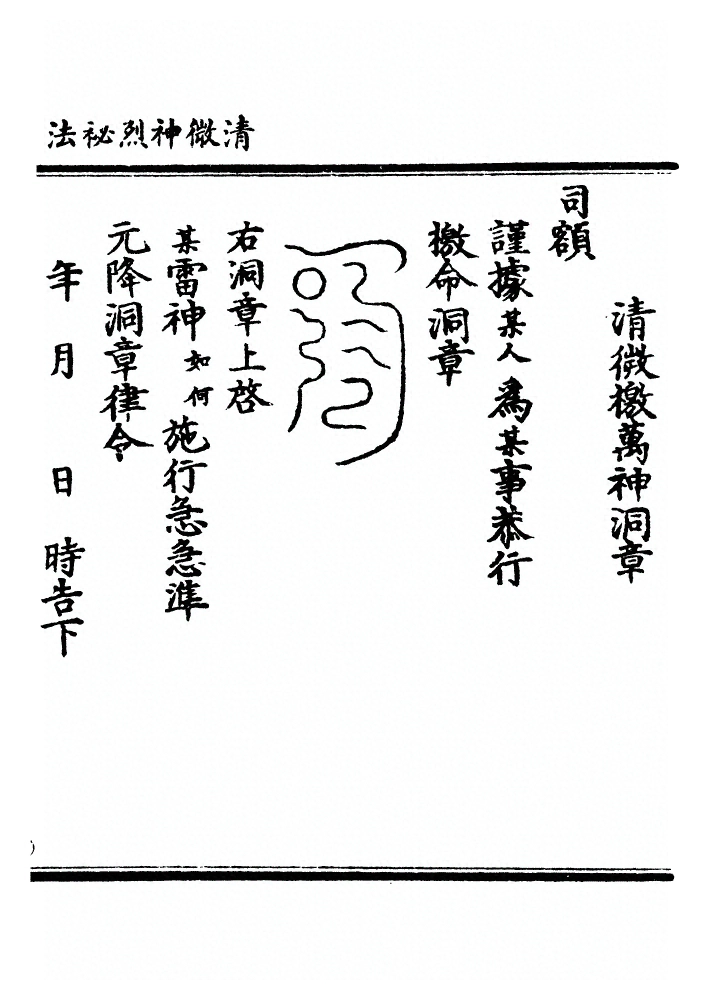 清微神烈祕法
清微檄萬神洞章
司額
謹據某人為某事恭行
檄命洞章
右洞章上啓
某雷神如何施行急急準
元降洞章律令
年月日時告下